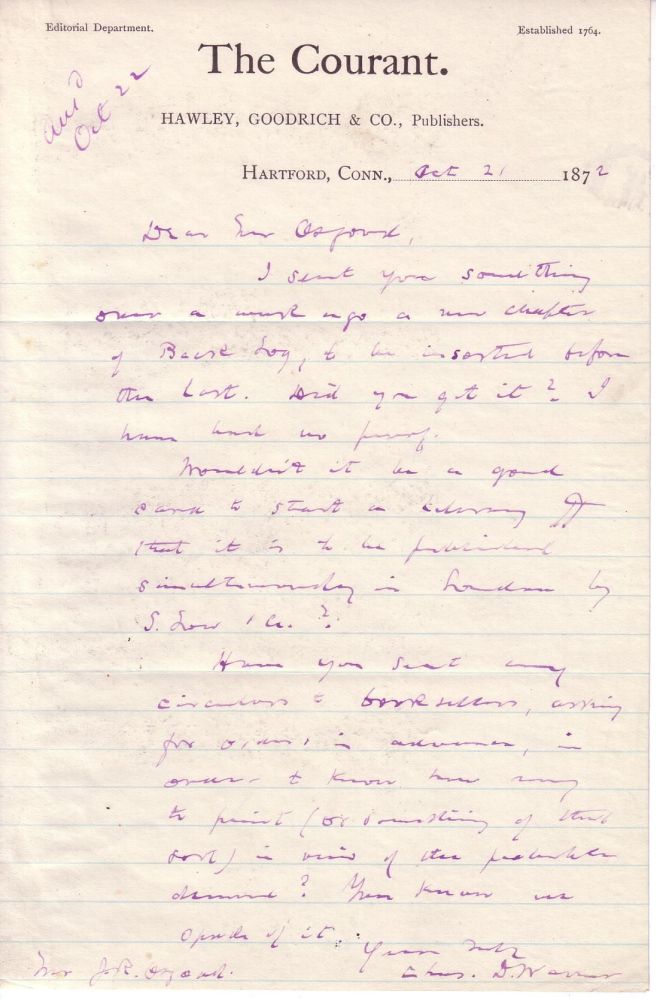 Editorial Department.
Established 1764.
The Courant.
ans'd
Oct 22
HAWLEY, GOODRICH & CO., Publishers.
HARTFORD, CONN., Oct 21 1872
Dear Mr Osgood,
I sent you something
over a week ago a new chapter
of Back Log, to be inserted before
the last. Did you get it? I
have had no proof.
Wouldn't it be a good
card to start a
that it is to be published
simultaneously in London by
S. Low & Co.?
Have you sent any
circulars to booksellers, asking
for orders in advance, in
order to know how many
to print (or something of that
sort) in view of the probable
demand? You know we
spoke of it.
Yours truly
Chas. D. Warner
Mr J. R. Osgood.